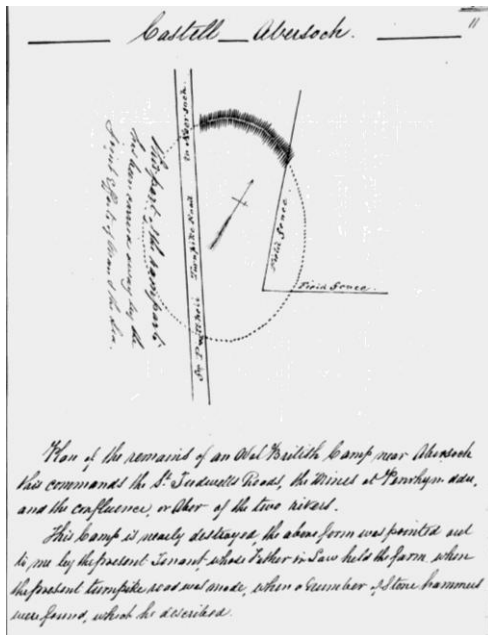 11
Castell Abersoch.
to Abersoch.
Turnpike Road
To Pwllheli
This part of the rampart
has been carried away by the
joint efforts of Man & the Sea.
Field Fence
Field Fence.
Plan of the remains of an Old British Camp near Abersoch
this commands the St. Tudwells Roads, the Mines at Penrhyn ddu,
and the confluence, or Aber of the two rivers.
This Camp is nearly destroyed the above form was pointed out
to me by the present Tenant whose Father in Law held the farm when
the present turnpike road was made, when a number of Stone hammers
were found, which he described.